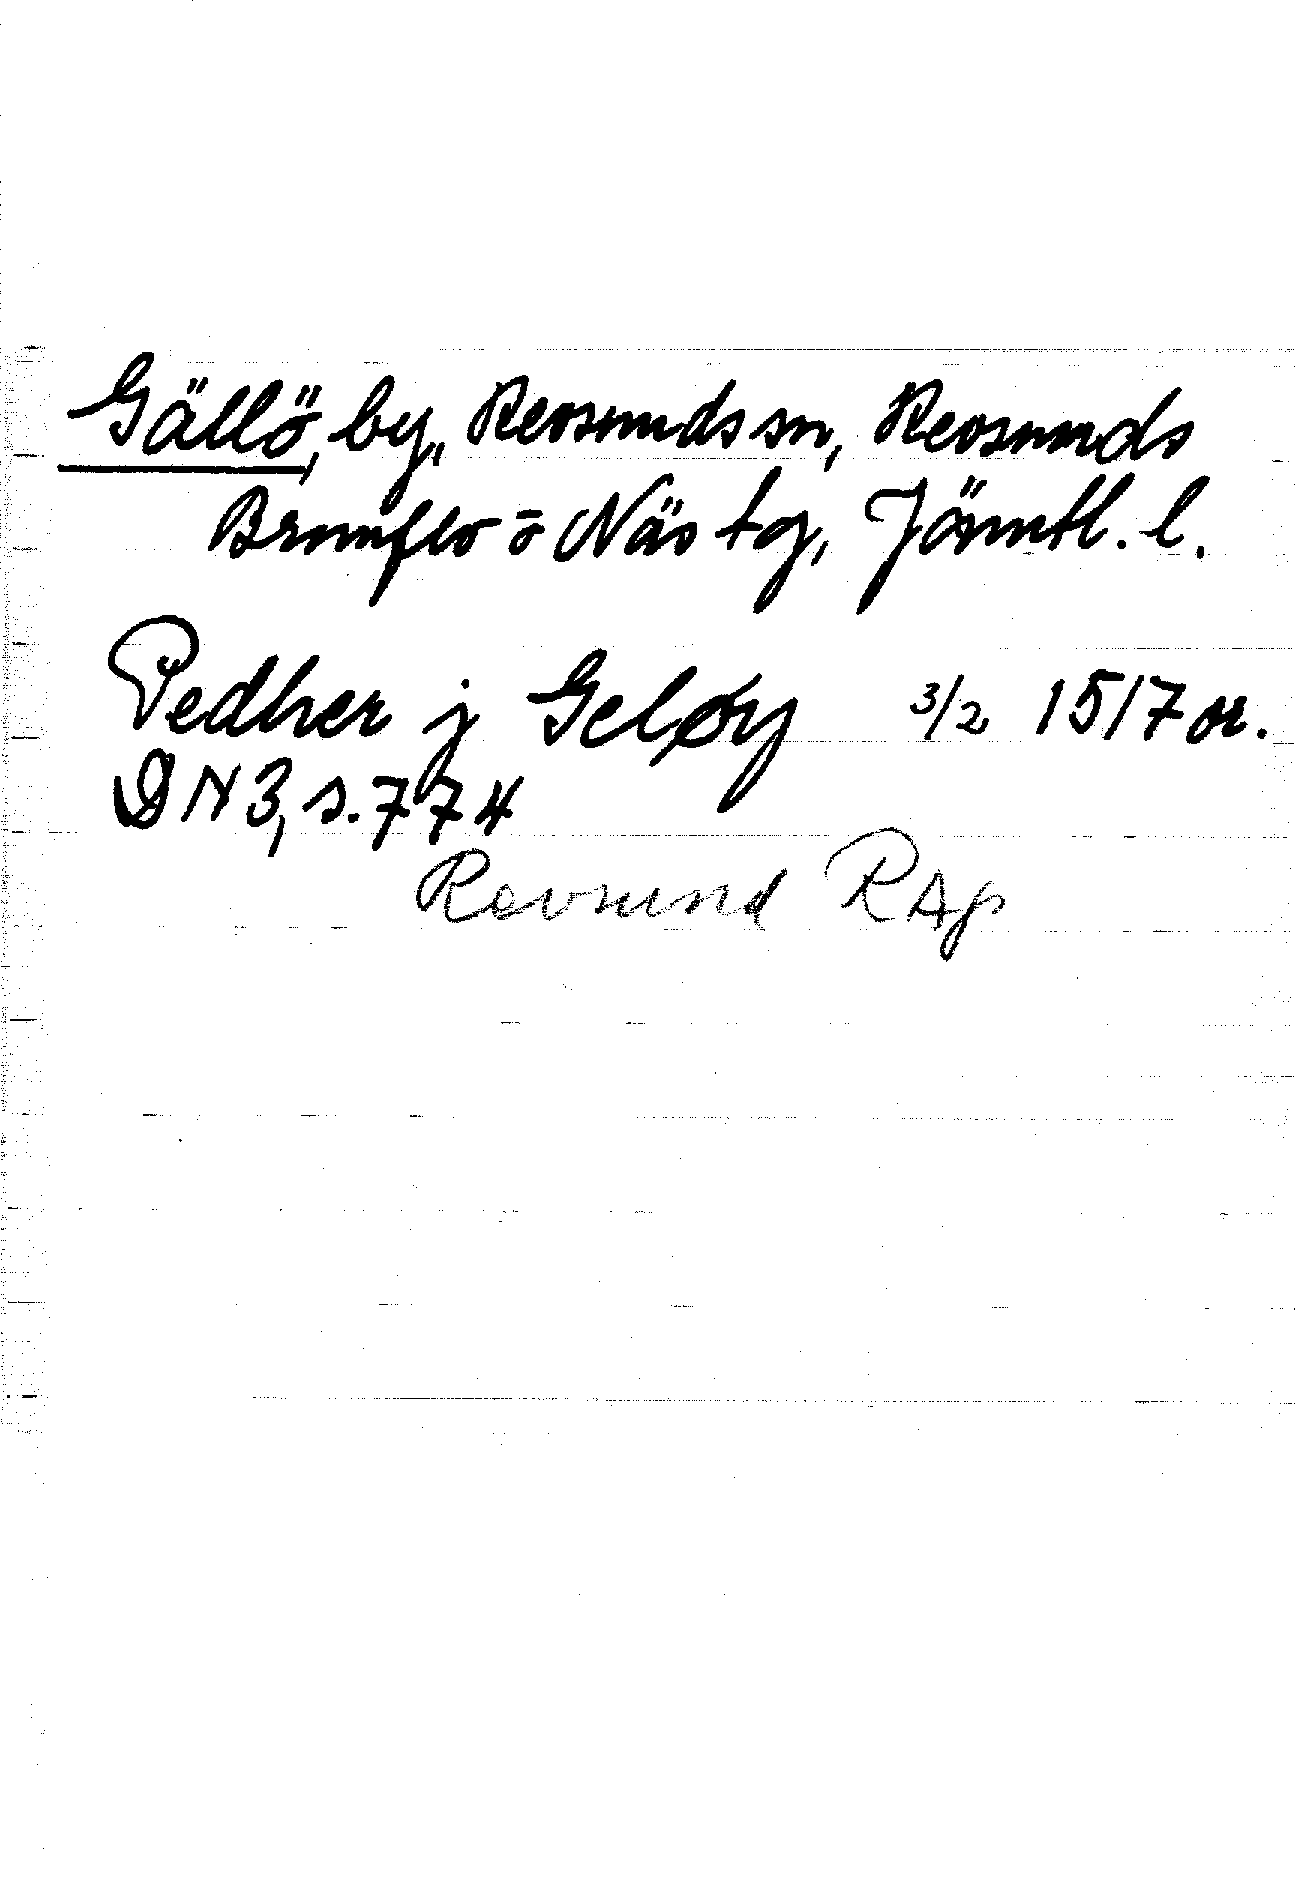 Gällö, by, Revsunds sn, Revsunds
Brunflo o Näs tg, Jämtl. l.
Pedher j Geløy 3/2 1517 or.
DN 3, s. 774
Revsund RAp